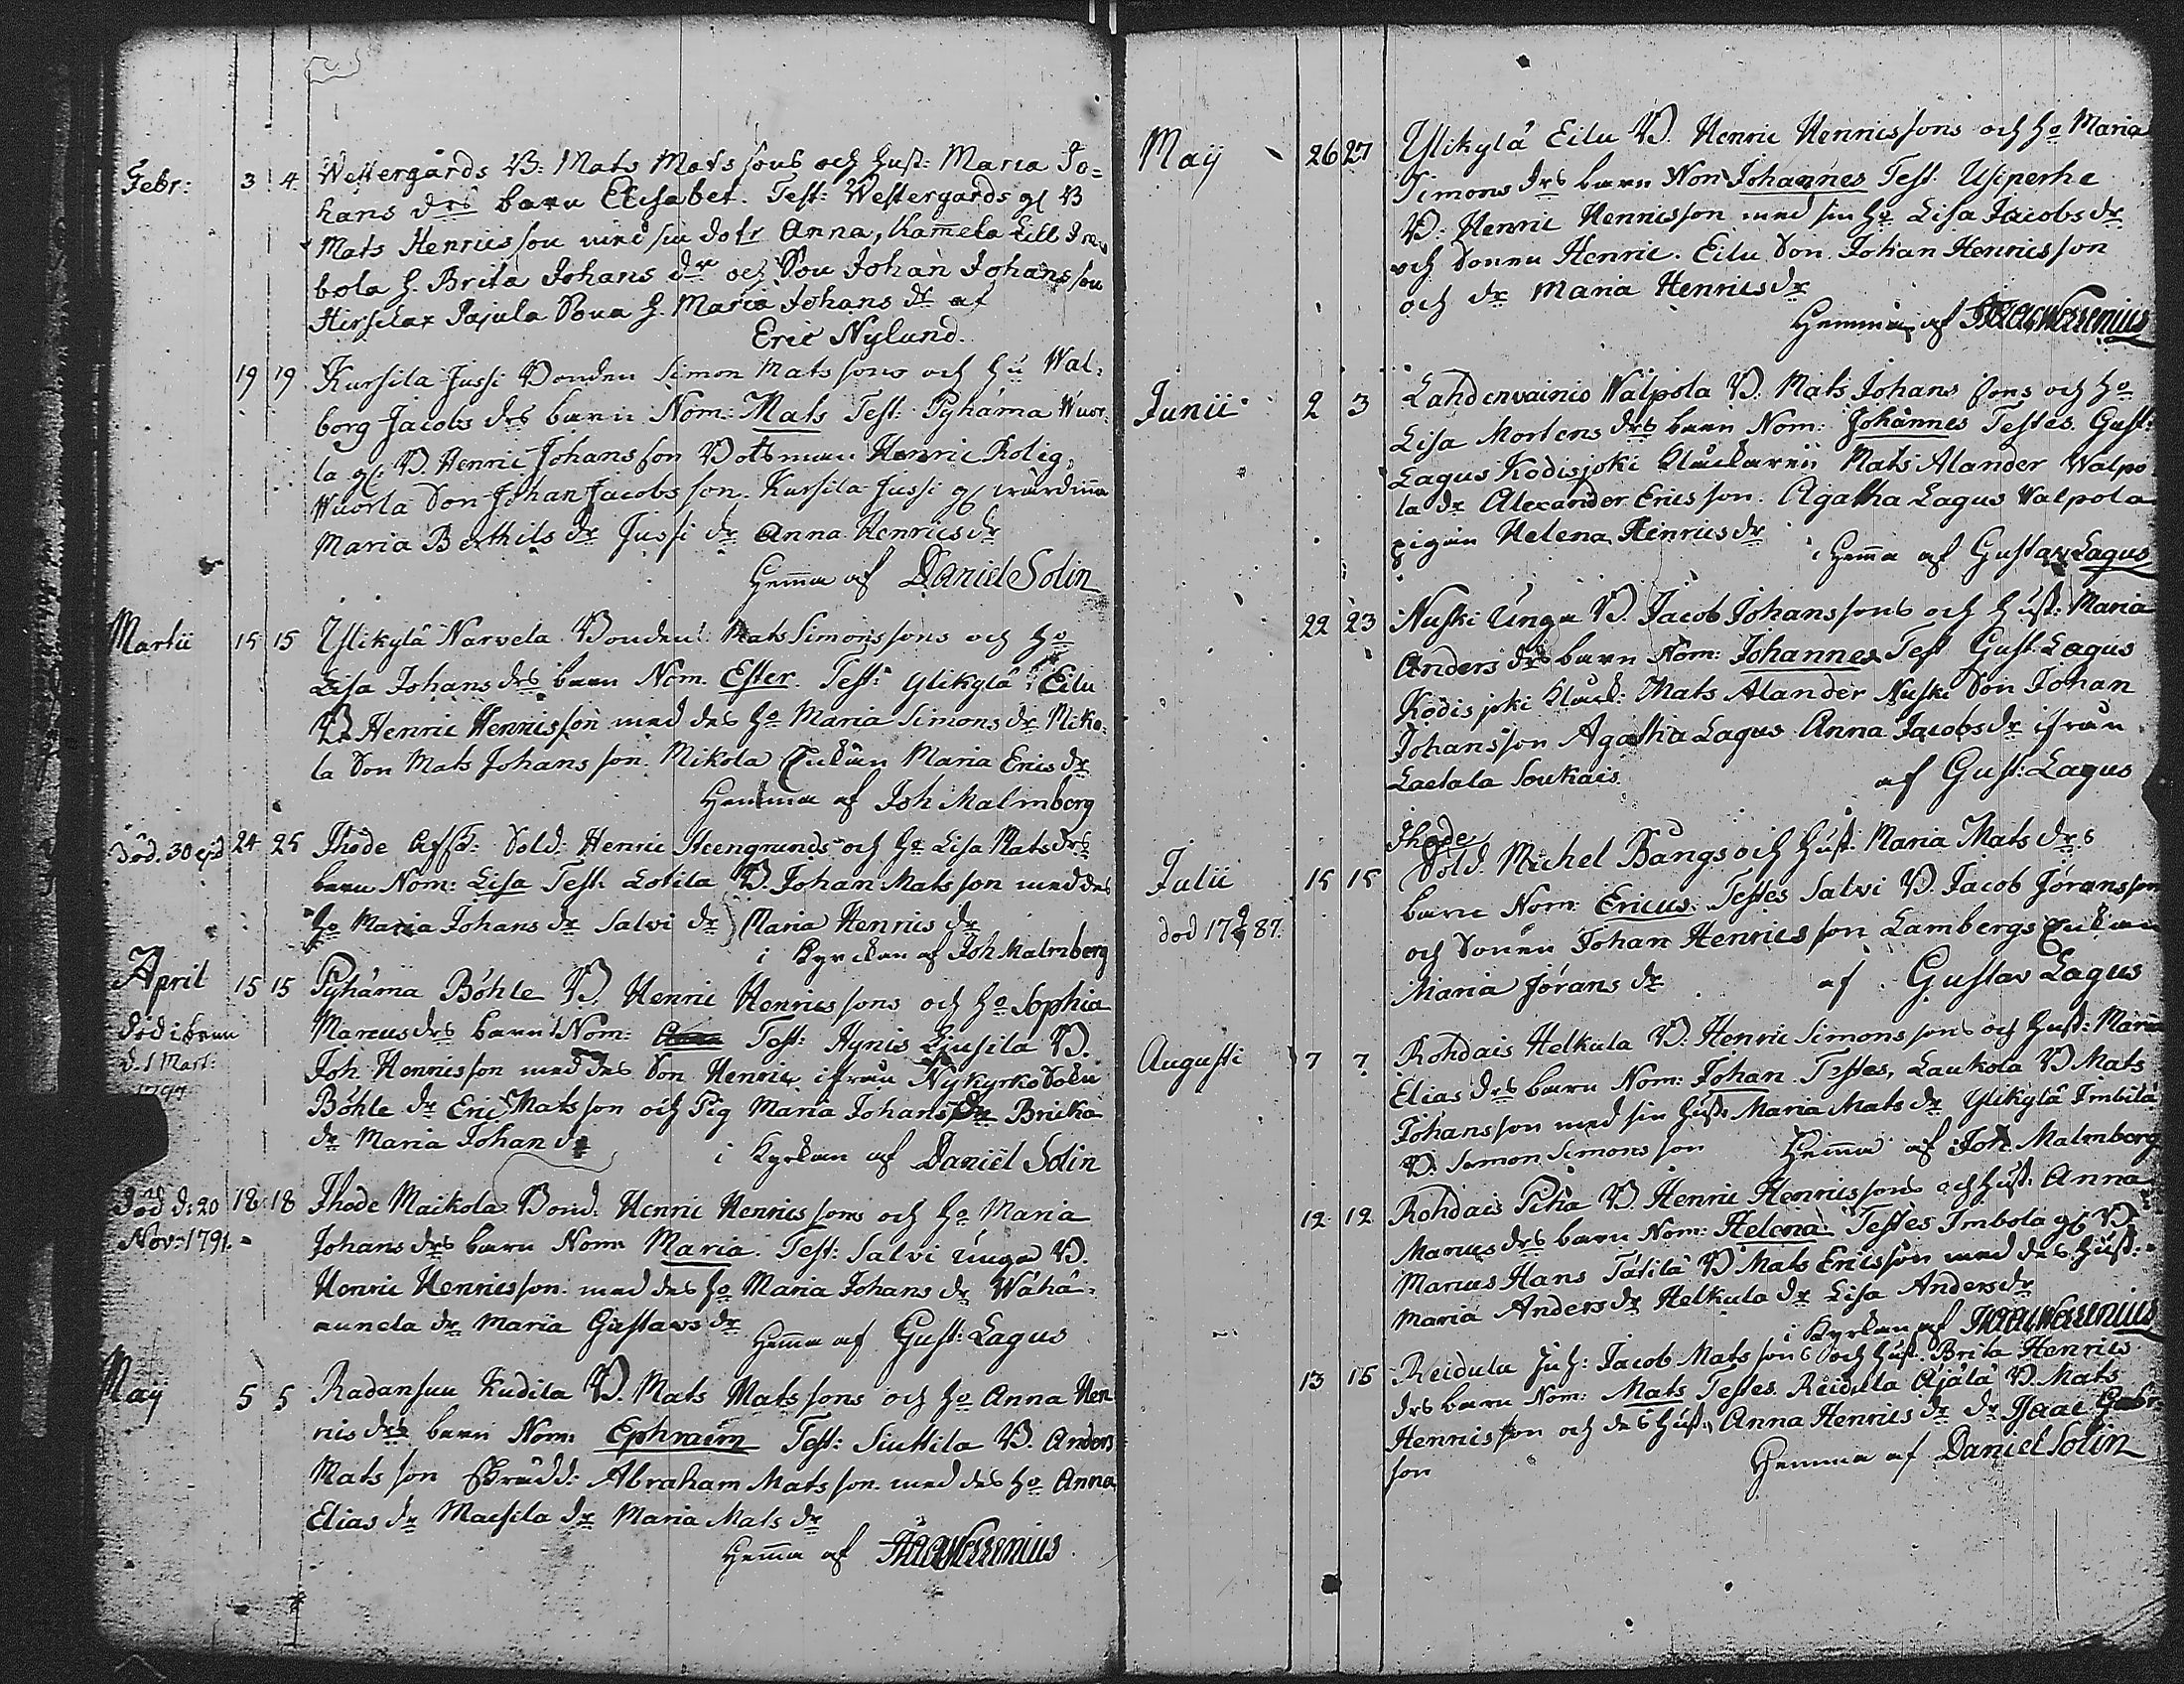 Febr: 3 4 Westergårds B: Mats Mats sons och hust: Maria Jo=
hans drs barn Elisabet. Test: Westergårds gl B
Mats Henrics son med sin dotr Anna,
bola h. Brita Johans dr och Son Johan Johans son
Pajula Sona h. Maria Johans dr af
Eric Nylund.
19 19 Kursila Jussi Bonden Simon Mats sons och hu Wal=
borg Jacobs drs barn Nom: Mats Test: Pyhäma Wuor=
la gl. B. Henric Johans son Botsman Henric Rolig,
Wuorla Son Johan Jacobs son. Kursila Jussi gl
Maria Berthils dr Jussi dr Anna Henrics dr
Hema af Daniel Solin
Martii 15 15 Ylikylä Narvela Bonden Mats Simons sons och ho
Lisa Johans drs barn Nom. Ester. Test: Ylikylä Eilu
B Henric Henricsson med des ho Maria Simons dr Miko=
la Son Mats Johans son. Mikola Enkan Maria Erics dr
Hemma af Joh Malmberg
död. 30 ejd 24 25 Ihode Sold: Henric Steengrunds och ho Lisa Mats drs
barn Nom: Lisa Test: Lotila B. Johan Mats son med des
ho Maria Johans dr Salvi dr Maria Henrics dr
i Kyrckan af Joh Malmberg
April 15 15 Pyhäma Böhle B. Henric Henrics sons och ho Sophia
död
Marcus drs barn Nom: Test: Hynis Ljusila B.
d. 1 Mart:
Joh. Henricsson med des Son Henric ifrån Nykyrko Sokn
Böhle dr Eric Matsson och Pig Maria Johans dr Bricka
dr Maria Johan dr i Kyrkan af Daniel Solin
död d: 20 18 18 Ihode Maikola Bond. Henric Henrics sons och ho Maria
Nov: 1791.
Johans drs barn Nom Maria. Test: Salvi Unga B.
Henric Henricsson. med des ho Maria Johans dr Wähä=
dr Maria Gustavs dr Hema af Gust: Lagus
Maij 5 5 Radansuu Kudila B. Mats Mats sons och ho Anna Hen
rics drs barn Nom: Ephraim Test: Siuttila B. Anders
Mats son Skrädd: Abraham Mats son. med des ho Anna
Elias dr Maesila dr Maria Mats dr
Hema af Isaac Wessenius
Maij 26 27 Ylikylä Eilu B. Henric Henrics sons och ho Maria
Simons drs barn Nom Johannes Test. Usiperhe
B. Henric Henricsson med sin ho Lisa Jacobs dr
och Sonen Henric. Eilu Son Johan Henrics son
och dr Maria Henrics dr
Hemma af Isaac Wessenius
Junii 2 3 Lahdenvainio Walpola B. Mats Johans sons och ho
Lisa Mortens drs barn Nom: Johannes Testes. Gust:
Lagus Kodisjoki Klåckaren Mats Alander Walpo
la dr Alexander Erics son. Agatha Lagus Valpola
pigan Helena Henrics dr i Hema af Gustav Lagus
22 23 Nuski Unga B. Jacob Johans sons och hust: Maria
Anders drs barn Nom: Johannes Test Gust Lagus
Kodisjoki Klåck: Mats Alander Nuski Son Johan
Johans son Agatha Lagus Anna Jacobs dr ifrån
Laetala Soukais. af Gust: Lagus
Ihode
Julii 15 15 Sold. Michel Bangs och hust. Maria Mats drs
barn Nom: Ericus. Testes Salvi B. Jacob Jörans son
död 17 87.
och Sonen Johan Henrics son Lambergs Enkan
Maria Jörans dr af Gustav Lagus
Augusti 7 7 Rohdais Helkula B: Henric Simons sons och hust: Maria
Elias drs barn Nom: Johan. Testes, Laukola B Mats
Johans son med sin hust: Maria Mats dr Ylikylä Imbilä
B. Simon Simons son Hemma af Joh Malmberg
12 12 Rohdais Piha B. Henric Henrics sons och hust. Anna
Marcus drs barn Nom: Helena. Testes Imbola gl B
Marcus Hans Tätilä B Mats Ericsson med des hust:
Maria Anders dr Helkula dr Lisa Anders dr
i Kyrkan af Isaac Wessenius
13 15 Reidula Inh: Jacob Mats sons och hust. Brita Henrics
drs barn Nom: Mats Testes. Reidula Äjälä B. Mats
Henrics son och des hust: Anna Henrics dr dr Isaac Gabr:
son Hemma af Daniel Solin